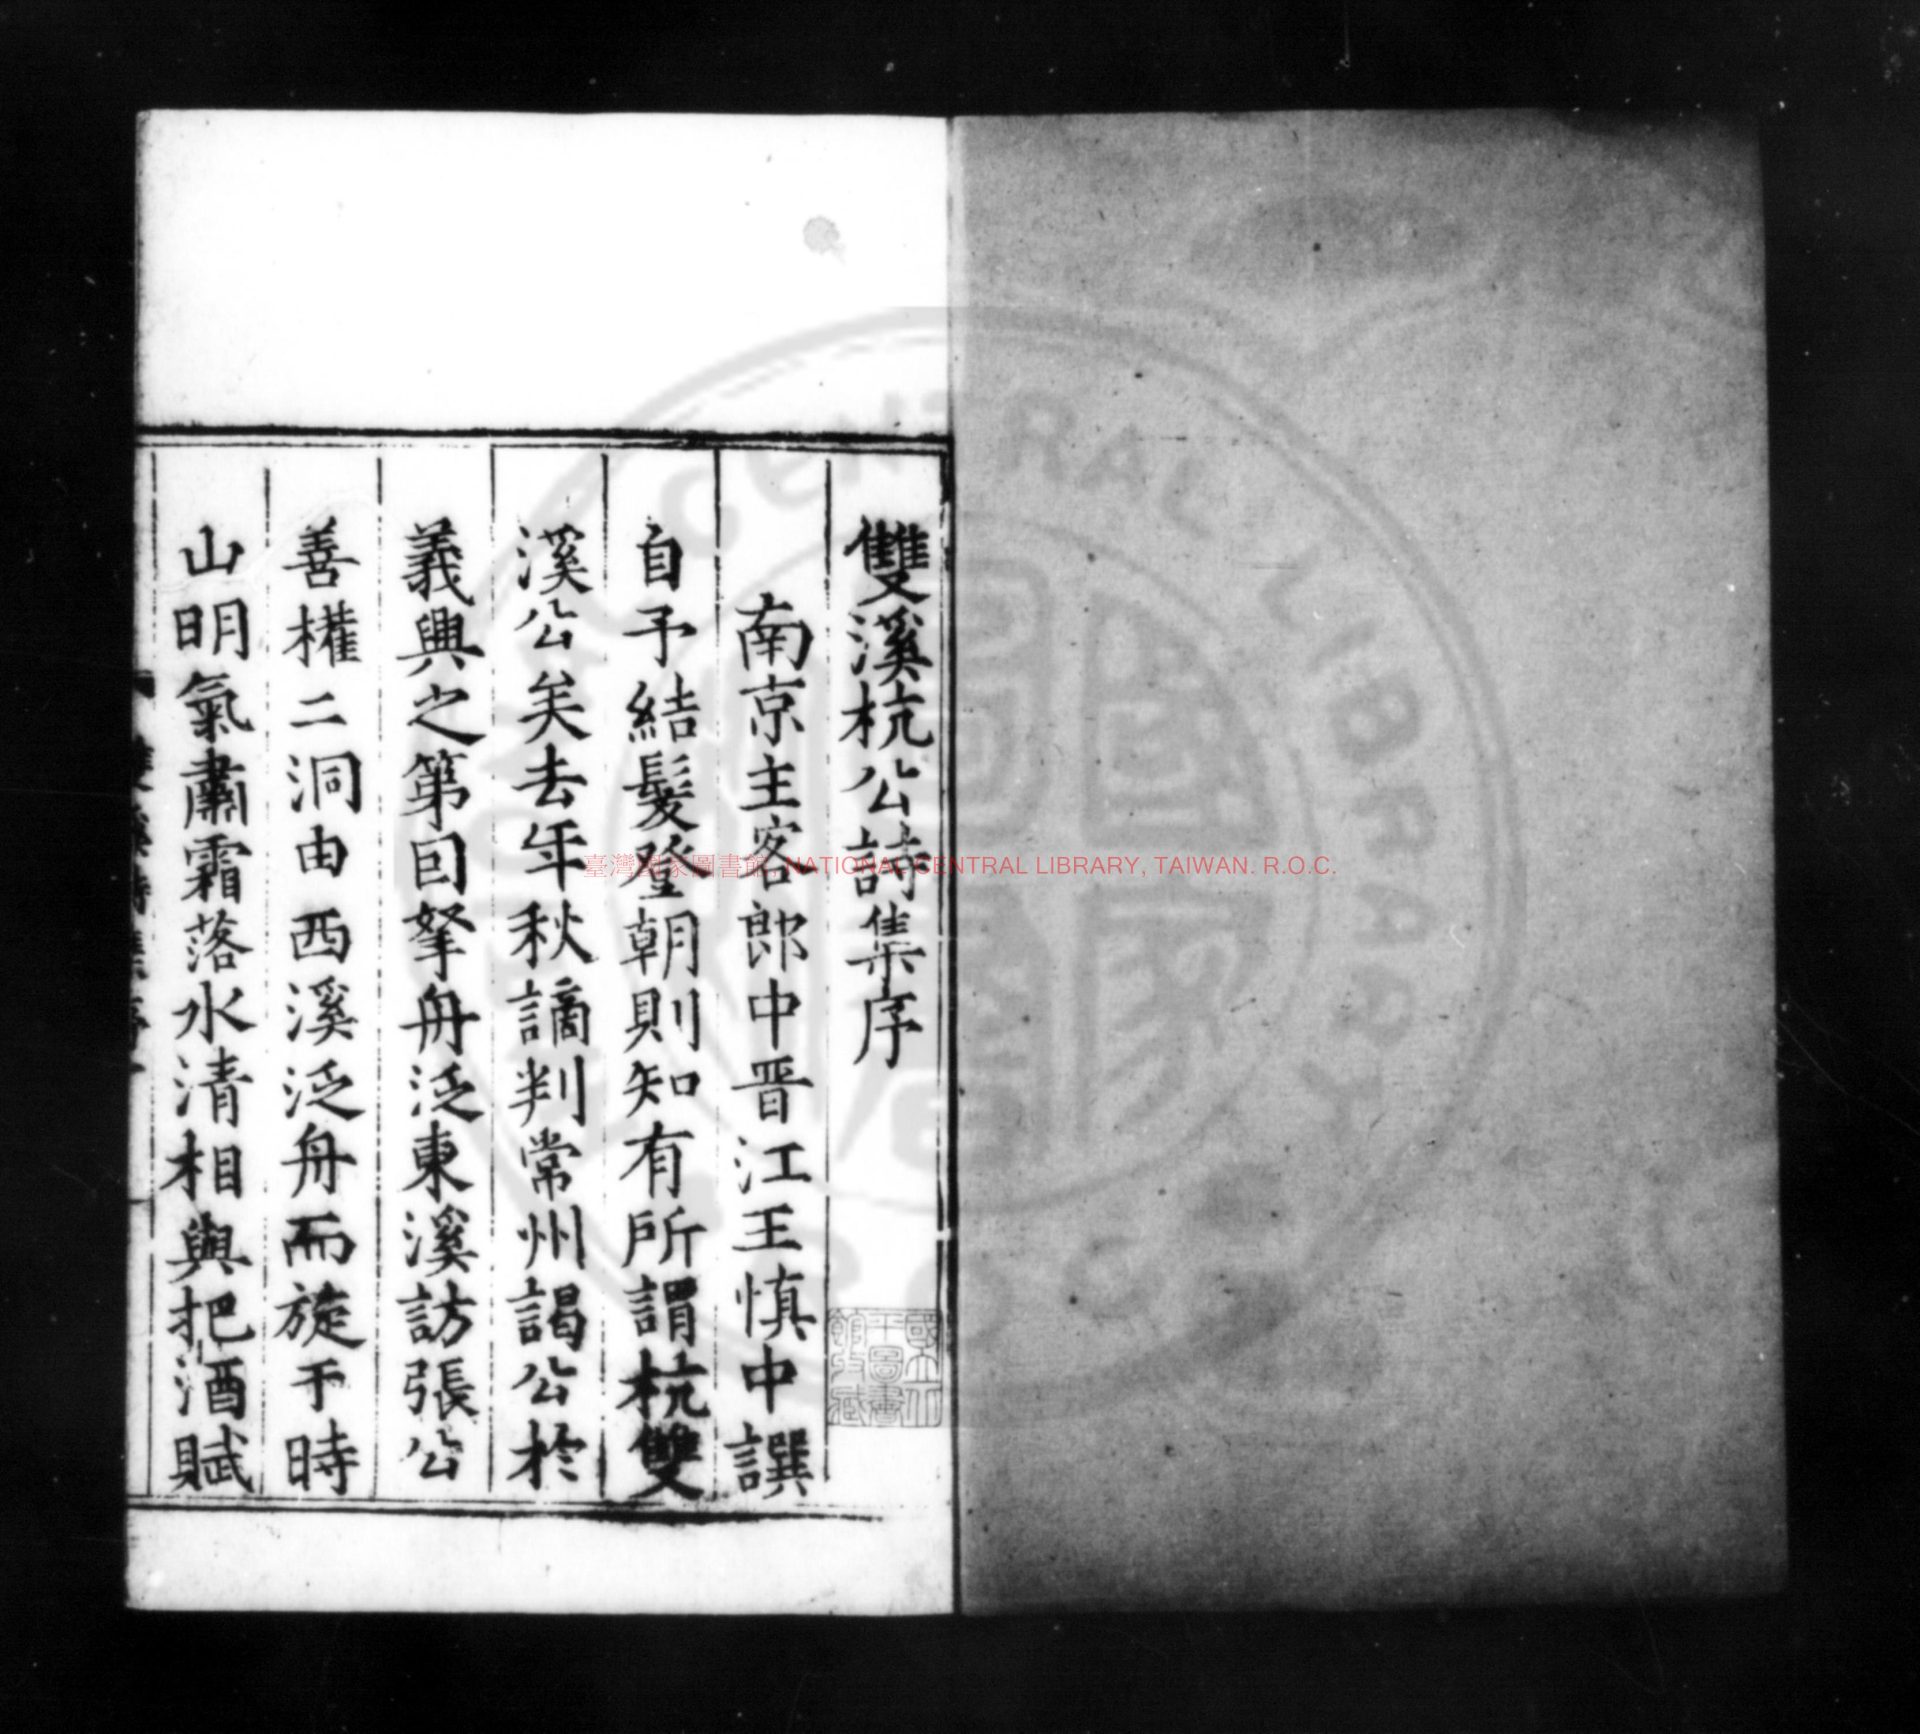 雙溪杭公詩集序
南京主客郎中晋江王慎中譔
自予結髮登朝則知有所謂杭雙
溪公矣去年秋謫判常州謁公於
義興之第因拏舟泛東溪訪張公
善權二洞由西溪泛舟而旋于時
山明氣肅霜落水清相與把酒賦
臺灣國家圖書館, NATIONAL CENTRAL LIBRARY, TAIWAN. R.O.C.
CENTRAL LIBRARY